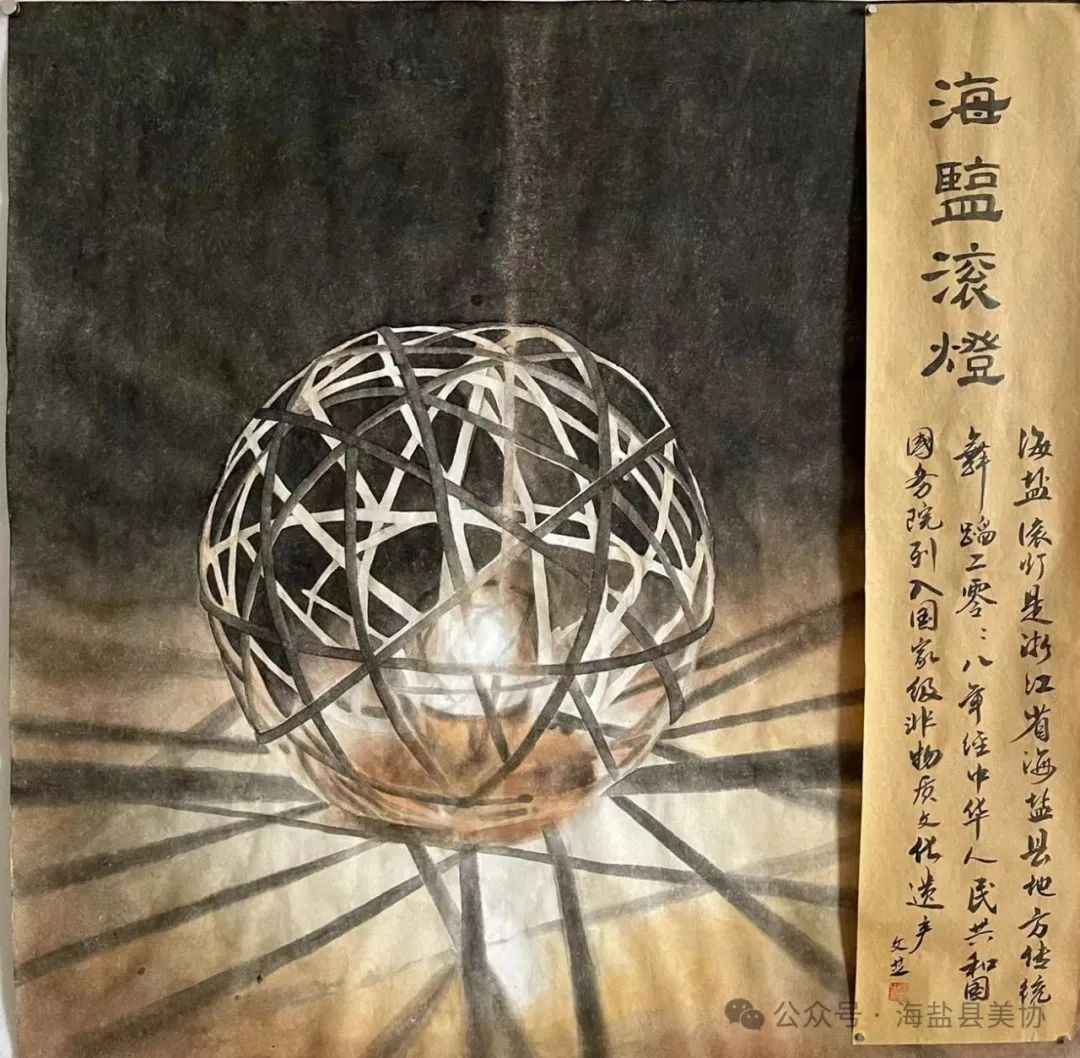 海盬滚燈
海盐滚灯是浙江省海盐县地方传统
舞蹈二零零八年经中华人民共和国
国务院列入国家级非物质文化遗产
公众号 · 海盐县美协